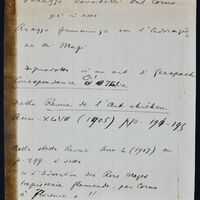 Palazzo Cavalcelli Dal Corno
già in esso
Arazzo fiammingo con l'Adorazio
ne dei Magi
riprodotto in un art. di Gerspach
Correspondance d'Italie
della Revue de l'Art chrétien
Ann. XLVII (1905) pp. 194-195
Nella stessa Revue Ann. 4 (1907) a
p. 299 è detto
"L'Adoration des Rois Mages
tapisserie flamande, par Corno
à Florence"